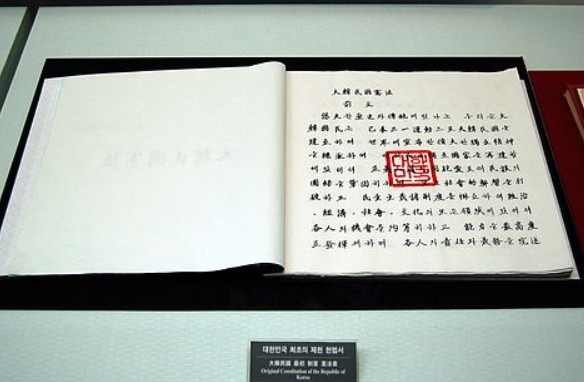 大韓民國憲法
前文
悠久한 歷史와 傳統에 빛나는 우리들 大
韓國民은 己未三一運動으로 大韓民國을
建立하여 世界에 宣布한 偉大한 獨立精神
을 繼承하여 國家를 再建함
에 있어서 正義 로써 民族의
團結을 鞏固히 하며 社會的 弊習을 打
破하고 民主主義諸制度를 樹立하여 政治
, 經濟, 社會, 文化의 모든 領域에 있어서
各人의 機會를 均等히 하고 能力을 最高度
로 發揮케 하며 各人의 責任과 義務를 完遂
대한민국
대한민국 최초의 제헌 헌법서
大韓民國 最初 制憲 憲法書
Original Constitution of the Republic of
Korea